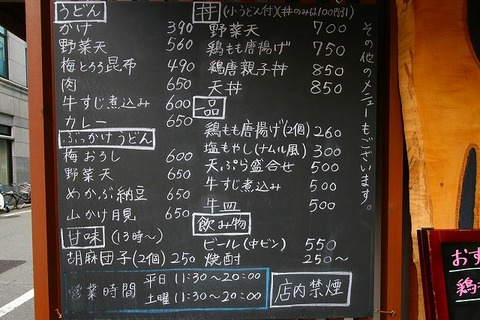 うどん
かけ 390
野菜天 560
梅とろろ昆布 490
肉 650
牛すじ煮込み 600
カレー 650
ぶっかけうどん
梅おろし 600
野菜天 650
めかぶ納豆 650
山かけ月見 650
甘味 (13時～)
胡麻団子(2個) 250
丼 (小うどん付)(丼のみは100円引)
野菜天 700
鶏もも唐揚げ 750
鶏唐親子丼 850
天丼 850
一品
鶏もも唐揚げ(2個) 260
塩もやし(ナムル風) 300
天ぷら盛合せ 500
牛すじ煮込み 500
牛皿 500
飲み物
ビール(中ビン) 550
焼酎 250～
その他のメニューもございます。
営業時間
平日 11:30～20:00
土曜 11:30～20:00
店内禁煙
おす
鶏も